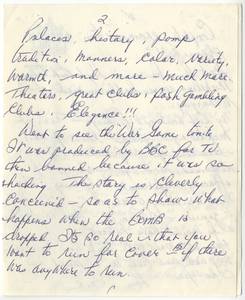 2
Palaces, history, pomp
tradition, manners, color, variety,
warmth, and more - much more.
Theaters, great clubs, posh gambling
clubs. Elegence!!!
Went to see the War Game tonite
It was produced by BBC for TV
then banned because it was so
shocking. The story is cleverly
conceived - so as to show what
happens when the BOMB is
dropped. Its so real that you
want to run for cover if there
was anywhere to run.